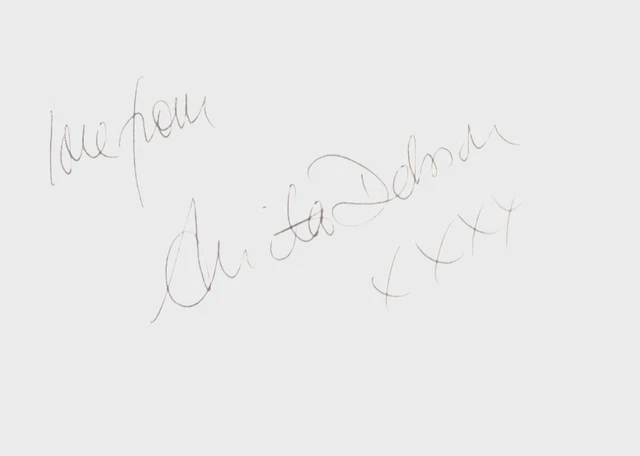 love from
Anita Dobson
xxxx